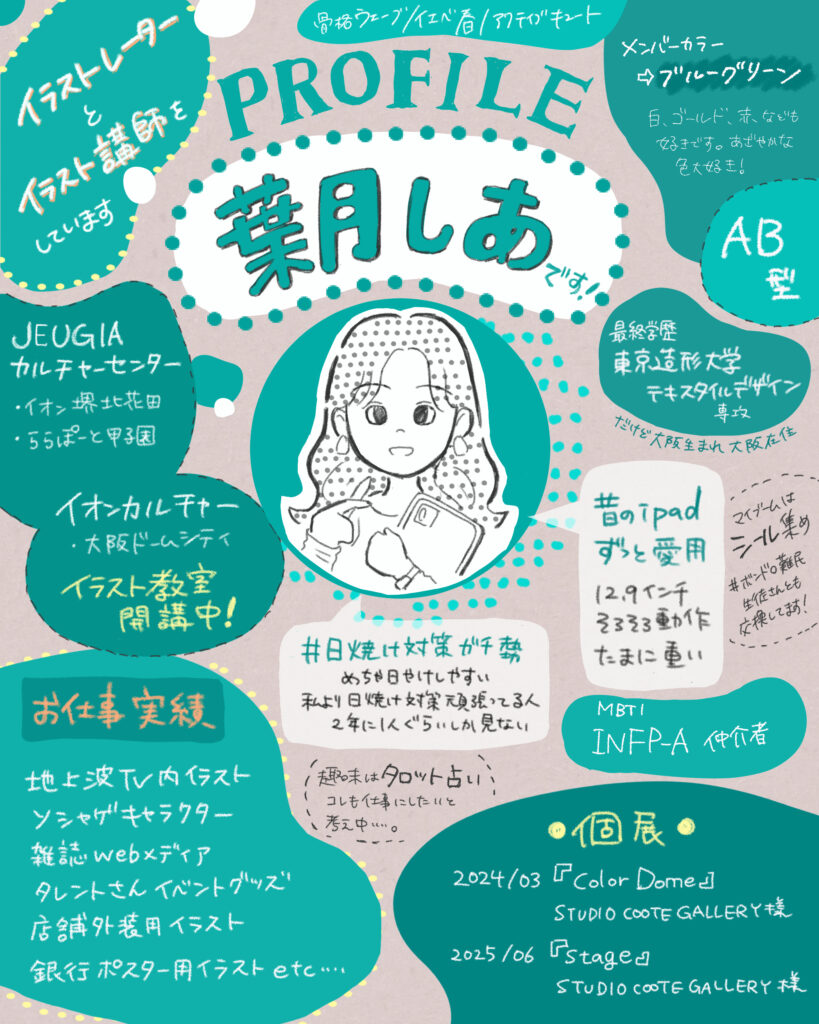 骨格ウェーブ/イエベ春/アクティブキュート
PROFILE
葉月しあ
です!
イラストレーター
と
イラスト講師を
しています
メンバーカラー
⇨ブルーグリーン
白、ゴールド、赤、なども
好きです。あざやかな
色大好き!
AB
型
JEUGIA
カルチャーセンター
・イオン堺北花田
・ららぽーと甲子園
イオンカルチャー
・大阪ドームシティ
イラスト教室
開講中!
最終学歴
東京造形大学
テキスタイルデザイン
専攻
だけど大阪生まれ大阪在住
昔のipad
ずっと愛用
12.9インチ
そろそろ動作
たまに重い
マイブームは
シール集め
#ボンドロ難民
生徒さんとも
交換してます!
#日焼け対策ガチ勢
めちゃ日やけしやすい
私より日焼け対策頑張ってる人
2年に1人ぐらいしか見ない
MBTI
INFP-A 仲介者
お仕事実績
地上波TV内イラスト
ソシャゲキャラクター
雑誌webメディア
タレントさんイベントグッズ
店舗外装用イラスト
銀行ポスター用イラストetc....
趣味はタロット占い
コレも仕事にしたいと
考え中....。
個展
2024/03『Color Dome』
STUDIO COOTE GALLERY様
2025/06『Stage』
STUDIO COOTE GALLERY様